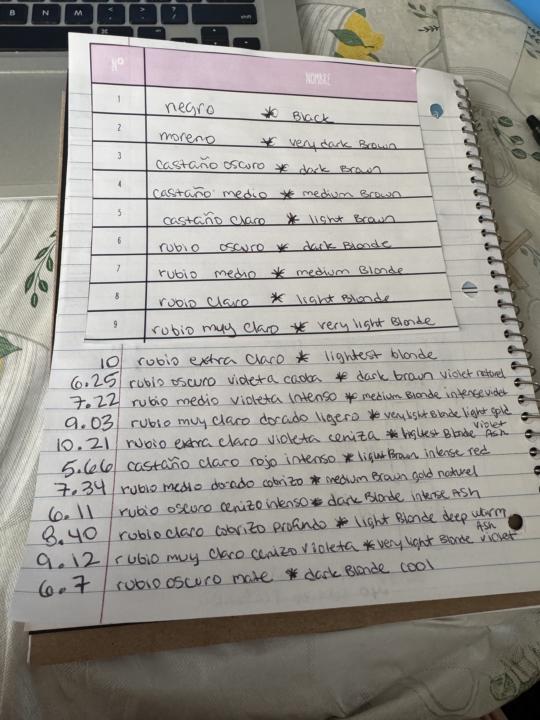 Nº NOMBRE
1 negro * Black
2 moreno * very dark Brown
3 castaño oscuro * dark Brown
4 castaño medio * medium Brown
5 castaño claro * light Brown
6 rubio oscuro * dark Blonde
7 rubio medio * medium Blonde
8 rubio claro * light Blonde
9 rubio muy claro * very light Blonde
10 rubio extra claro * lightest blonde
6.25 rubio oscuro violeta caoba * dark brown violet naturel
7.22 rubio medio violeta intenso * medium Blonde intense violet
9.03 rubio muy claro dorado ligero * very light Blonde light gold
10.21 rubio extra claro violeta ceniza * lightest Blonde violet Ash
5.66 castaño claro rojo intenso * light Brown intense red
7.34 rubio medio dorado cobrizo * medium Brown gold naturel
6.11 rubio oscuro cenizo intenso * dark Blonde intense Ash
8.40 rubio claro cobrizo profundo * light Blonde deep warm
9.12 rubio muy claro cenizo violeta * very light Blonde Ash violet
6.7 rubio oscuro mate * dark Blonde cool
N M < > ?